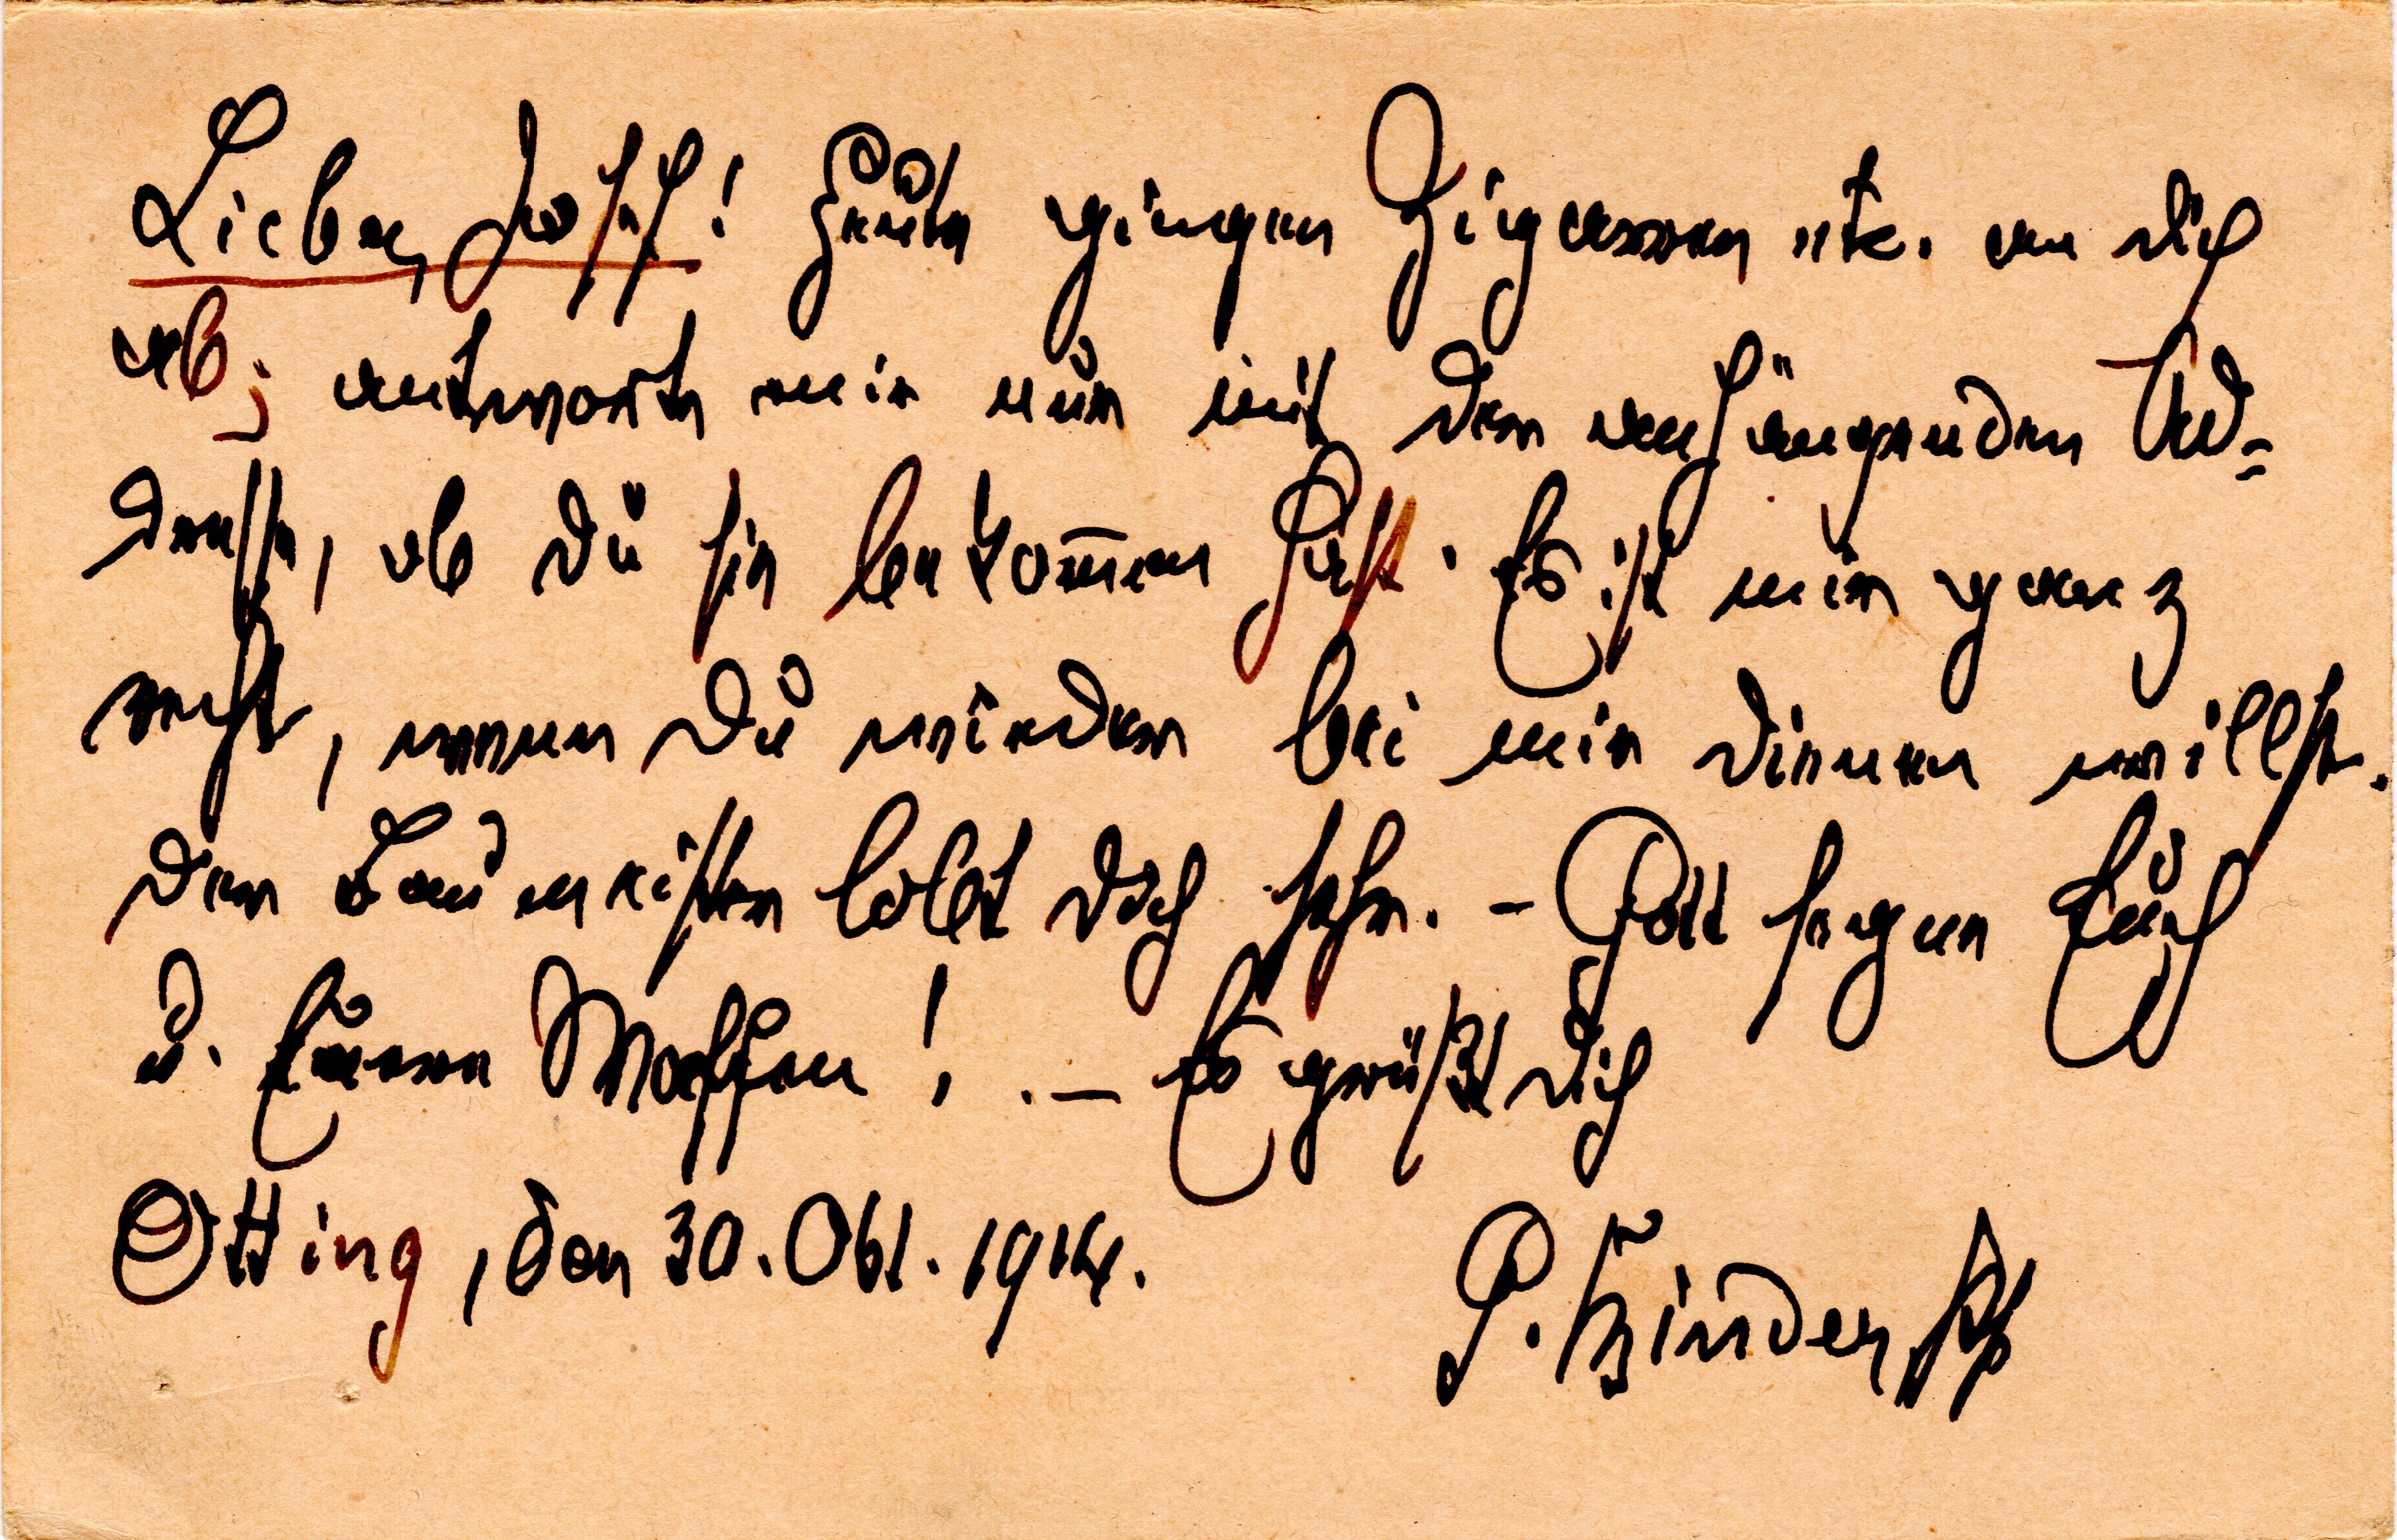 Lieber Josef! Heute gingen Zigarren etc. an dich
ab; antworte mir nur mit der anhängenden Ad=
dresse, ob Du sie bekom̅en hast. Es ist mir ganz
recht, wenn Du wieder bei mir dienen willst.
Der Baumeister lobt dich sehr. – Gott segne Euch
u. Euere Waffen! . – Es grüßt Dich
Otting, den 30. Okt. 1914.
P. Binder, Pf